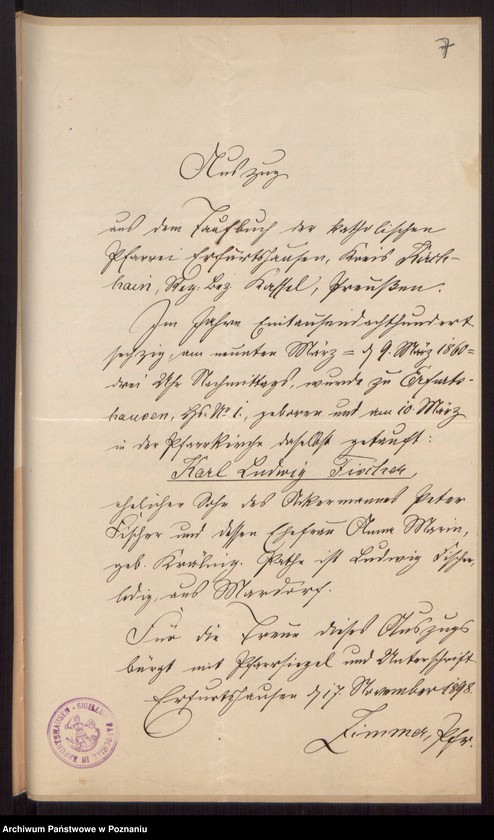 7
Auszug
aus dem Taufbuch der katholischen
Pfarrei Erfurtshausen, Kreis Kirch-
hain, Reg. Bez. Kassel, Preußen.
Im Jahre Eintausendachthundert
sechzig, am neunten März = d 9. März 1860 =
drei Uhr Nachmittags, wurde zu Erfurts-
hausen, Hs. No 1., geboren und am 10. März
in der Pfarrkirche daselbst getauft:
Karl Ludwig Fischer,
ehelicher Sohn des Ackermannes Peter
Fischer und dessen Ehefrau Anna Maria,
geb. Pathe ist Ludwig Fischer,
ledig, aus Mardorf.
Für die Treue dieses Auszugs
bürgt mit Pfarrsiegel und Unterschrift
Erfurtshausen d 17. November 1898.
Zimmer, Pfr.
SIGILLUM PAROCHIAE IN ERFURTSHAUSEN
Archiwum Państwowe w Poznaniu